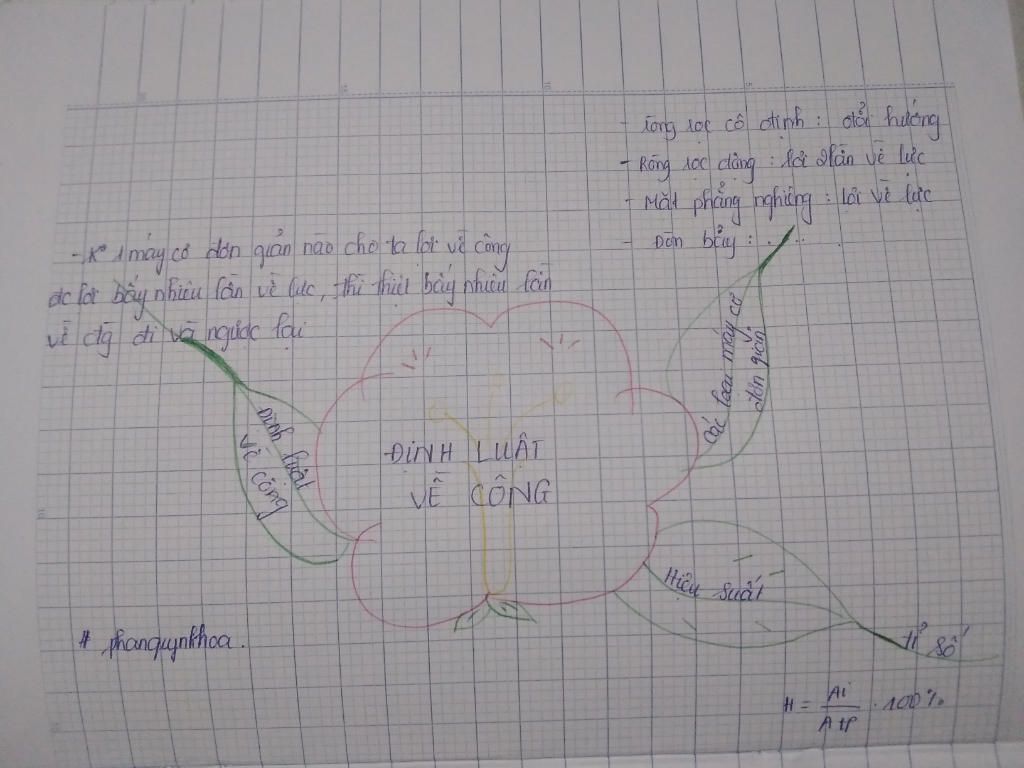 - ròng rọc cố định : đổi hướng
- Ròng rọc động : lợi 2lần về lực
- Mặt phẳng nghiêng : lợi về lực
- Đòn bẩy : . . . .
- Kº 1 máy cơ đơn giản nào cho ta lợi về công
đc lợi bấy nhiêu lần về lực, thì thiệt bấy nhiêu lần
về đg đi và ngược lại
Các loại máy cơ
đơn giản
Định luật
về công
ĐỊNH LUẬT
VỀ CÔNG
Hiệu suất
tỉ số
# phanquynkhoa.
H = Ai / Atp . 100%